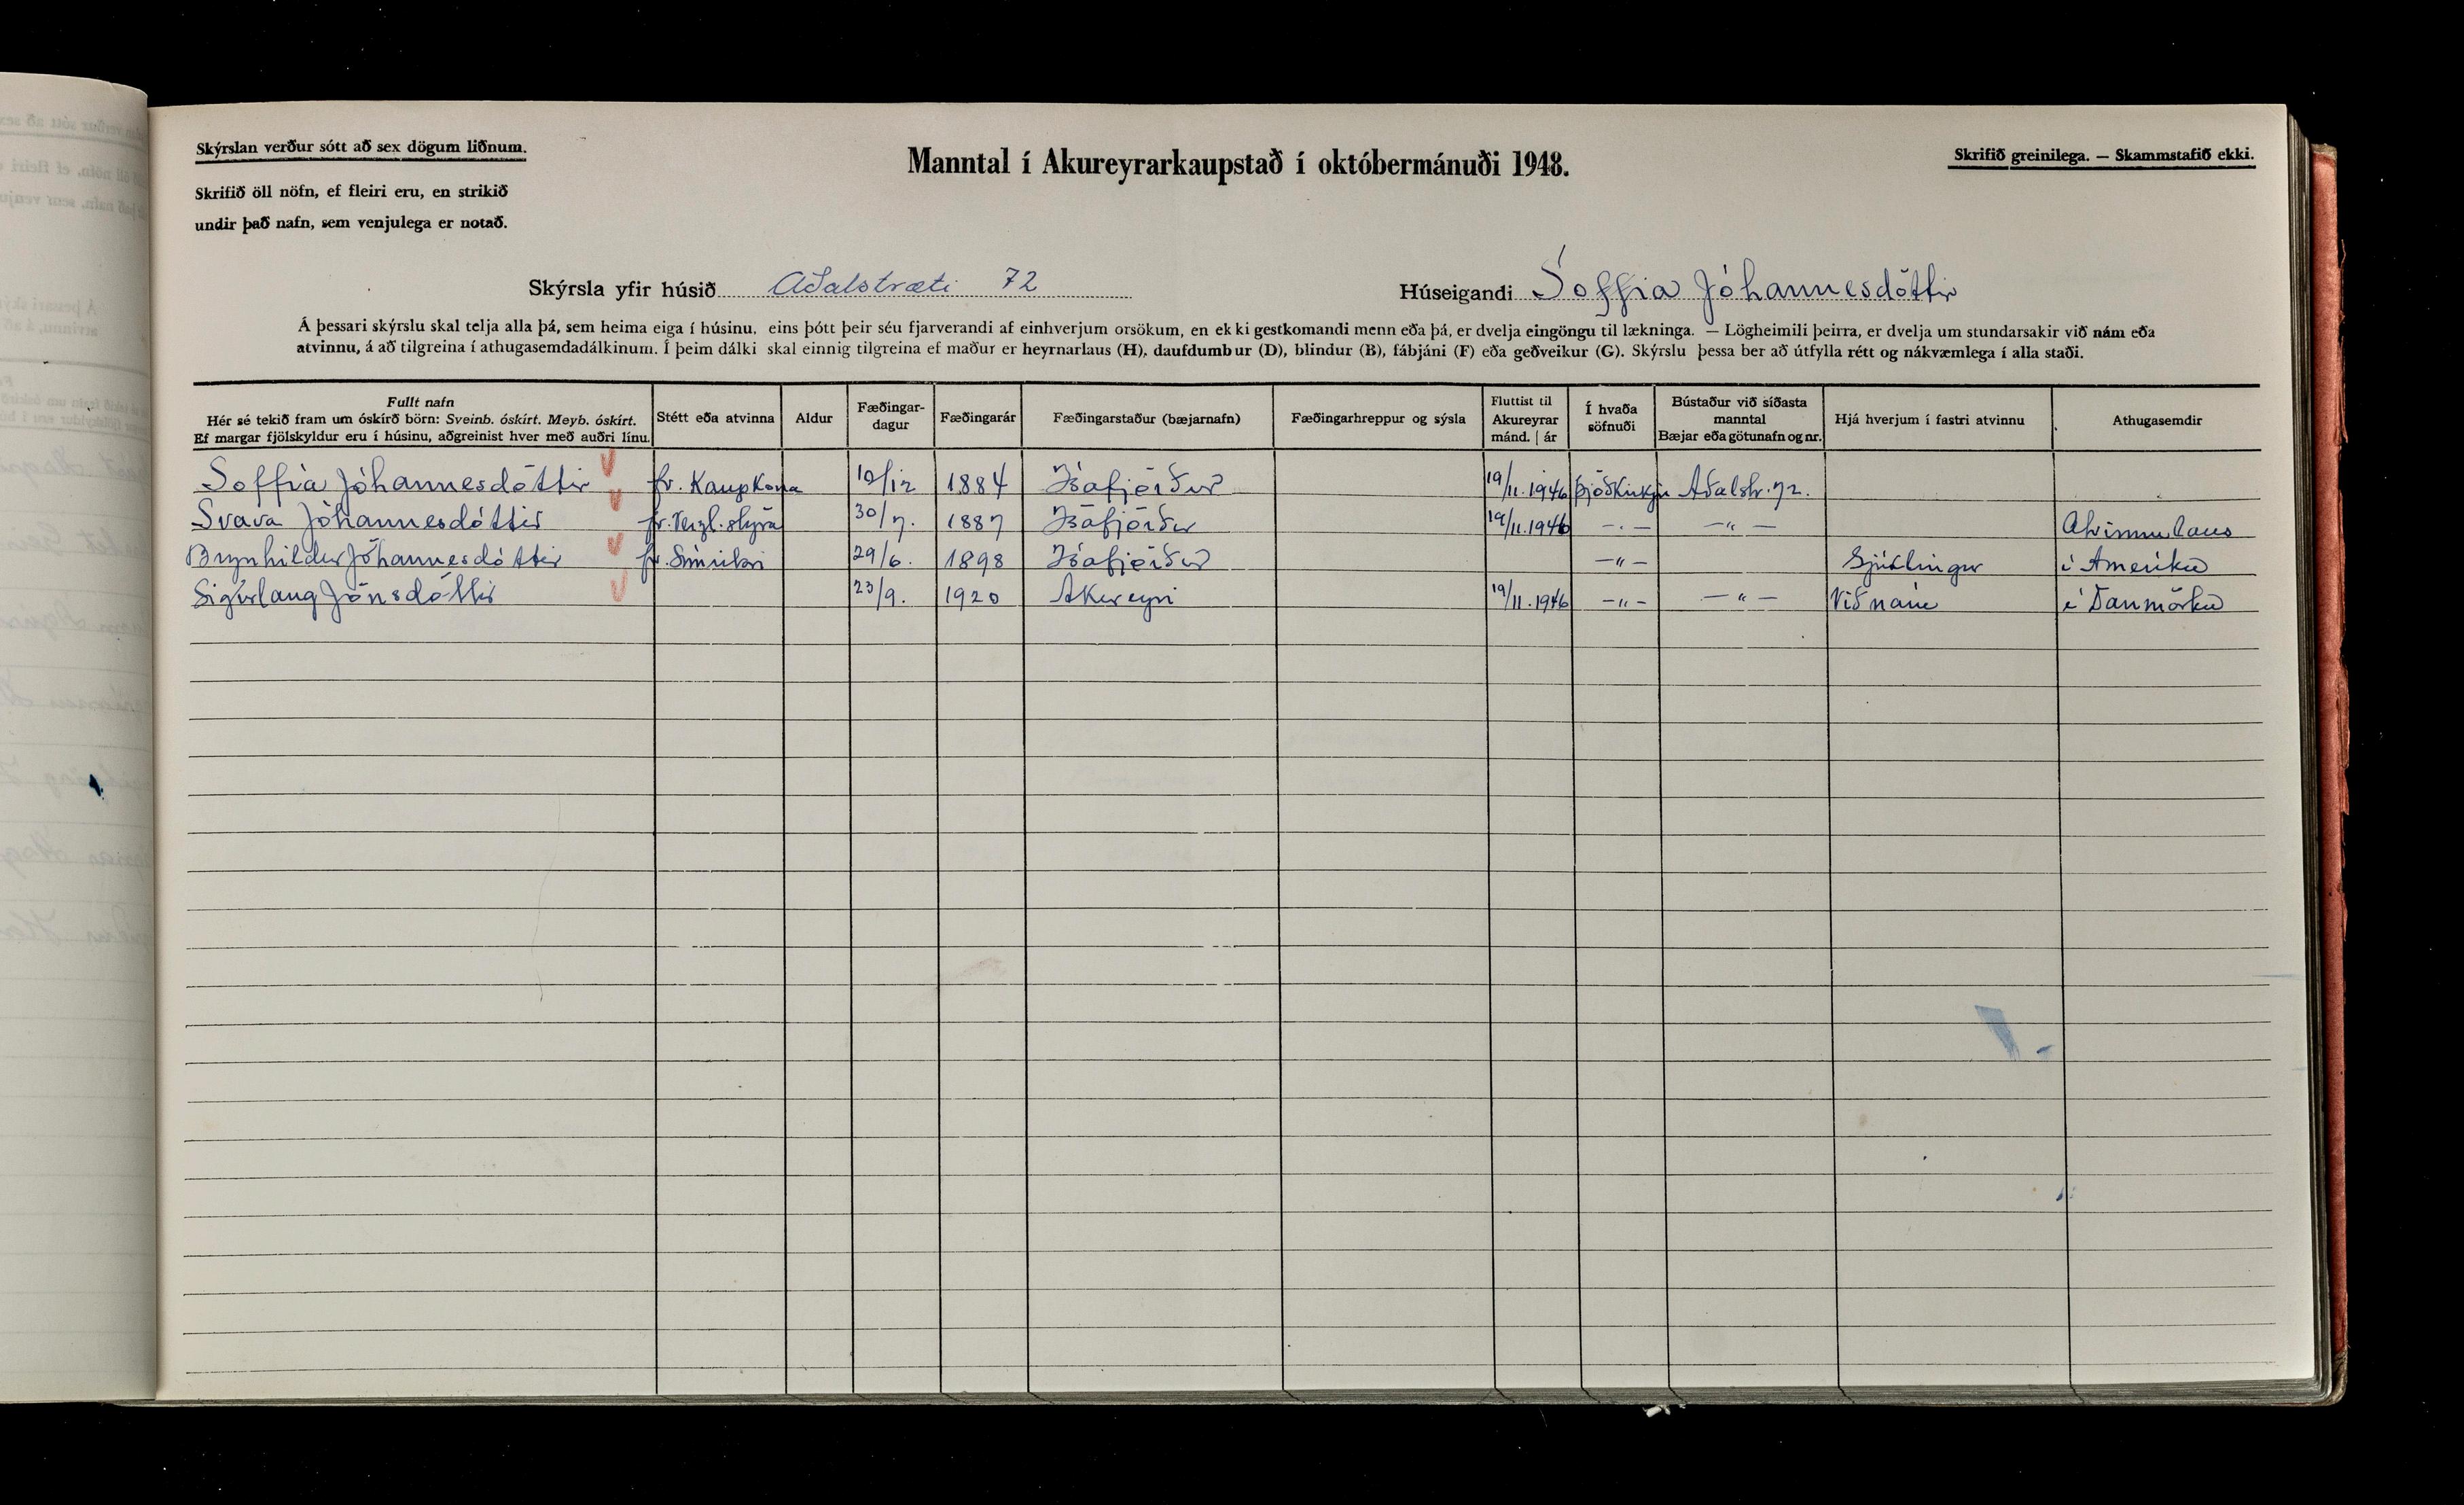 Skýrslan verður sótt að sex dögum liðnum.
Skrifið öll nöfn, ef fleiri eru, en strikið
undir það nafn, sem venjulega er notað.
Manntal í Akureyrarkaupstað í októbermánuði 1948.
Skrifið greinilega. — Skammstafið ekki.
Skýrsla yfir húsið Aðalstræti 72
Húseigandi Soffía Jóhannesdóttir
Á þessari skýrslu skal telja alla þá, sem heima eiga í húsinu, eins þótt þeir séu fjarverandi af einhverjum orsökum, en ekki gestkomandi menn eða þá, er dvelja eingöngu til lækninga. — Lögheimili þeirra, er dvelja um stundarsakir við nám eða
atvinnu, á að tilgreina í athugasemdadálkinum. Í þeim dálki skal einnig tilgreina ef maður er heyrnarlaus (H), daufdumbur (D), blindur (B), fábjáni (F) eða geðveikur (G). Skýrslu þessa ber að útfylla rétt og nákvæmlega í alla staði.
Fullt nafn
Hér sé tekið fram um óskírð börn: Sveinb. óskírt. Meyb. óskírt.
Ef margar fjölskyldur eru í húsinu, aðgreinist hver með auðri línu.
Stétt eða atvinna
Aldur
Fæðingar-
dagur
Fæðingarár
Fæðingarstaður (bæjarnafn)
Fæðingarhreppur og sýsla
Fluttist til
Akureyrar
mánd. | ár
Í hvaða
söfnuði
Bústaður við síðasta
manntal
Bæjar eða götunafn og nr.
Hjá hverjum í fastri atvinnu
Athugasemdir
Soffía Jóhannesdóttir fr. Kaupkona 1884 Ísafjörður 19/11.1946 þjóðkirkju Aðalstr. 72.
Svava Jóhannesdóttir fr. 30/7. 1887 Ísafjörður 19/11.1946 — " — — " — Atvinnulaus
Brynhildur Jóhannesdóttir fr. 29/6. 1898 Ísafjörður — " — Sjúklingur í Ameríku
Sigurlaug Jónsdóttir 23/9. 1920 Akureyri 19/11.1946 — " — — " — Við nám í Danmörku